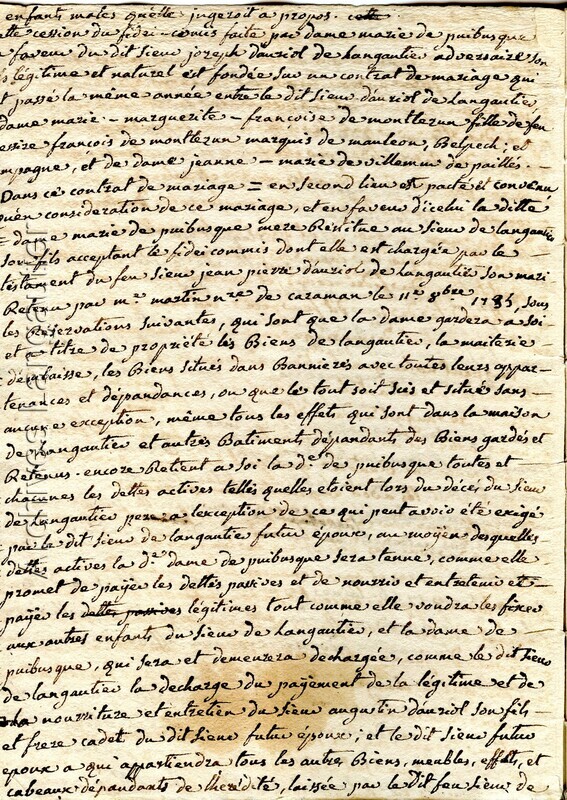 enfants males qu'elle jugeroit a propos. cette
ette cession du fidei-comis faite par dame marie de puibusque
a faveur du dit sieur joseph dauriol de Langautier adversaire son
s légitime et naturel est fondée sur un contrat de mariage qui
t passé la même année entre le dit sieur dauriol de langautier
dame marie - marguerite - francoise de montlezun fille de feu
essire francois de montlezun marquis de mauleon, Belpech; et
mpagne, et de dame jeanne - marie de villemur de paillés. -
Dans ce contrat de mariage = en second lieu est pacté et convenu
u'en consideration de ce mariage, et en faveur d'icelui la ditte
= dame marie de puibusque mere Remetue au sieur de langautier
son fils acceptant le fidei commis dont elle est chargée par le
testament du feu sieur jean pierre dauriol de langautier son mari
Retenu par me. martin nre. de caraman le 11e. 8bre. sous
les Réservations suivantes, qui sont que la dame gardera a soi
et a titre de propriété les Biens de langautier, la maiterie
d'enfaisse, les Biens situés dans Bannieres avec toutes leurs appar-
tenances et dépandances, ou que le tout soit sis et situé sans
aucune exception, même tous les effets qui sont dans la maison
de langautier et autres Batiments dépandants des Biens gardés et
Retenus. encore Retient a soi la de. de puibusque toutes et
chacunes les dettes actives telles quelles etoient lors du décès du sieur
de langautier pere, a l'exception de ce qui peut avoir été exigé
par le dit sieur de langautier futur epoux, au moyen desquelles
dettes actives la de. dame de puibusque sera tenue, comme elle
promet de paÿer les dettes passives et de nourrir et entretenir et
païer les dettes passives légitimes tout comme elle voudra les fixer
aux autres enfants du sieur de Langautier, et la dame de
puibusque, qui sera et demeurera dechargée, comme le dit sieur
de langautier la decharge du païement de la légitime et de
la nourriture et entretien du sieur augustin dauriol son fils
et frere cadet du dit sieur futur epoux; et le dit sieur futur
epoux a qui appartiendra tous les autres Biens, meubles, effets, et
cabeaux dépandants de l'herédité, laissée par le dit feu sieur de